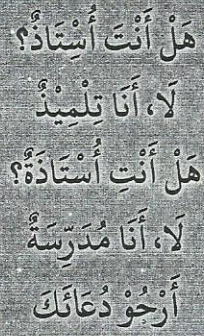 هَلْ أَنْتَ أُسْتَاذٌ؟
لَا، أَنَا تِلْمِيْذٌ
هَلْ أَنْتِ أُسْتَاذَةٌ؟
لَا، أَنَا مُدَرِّسَةٌ
أَرْحُوْ دُعَائَكَ